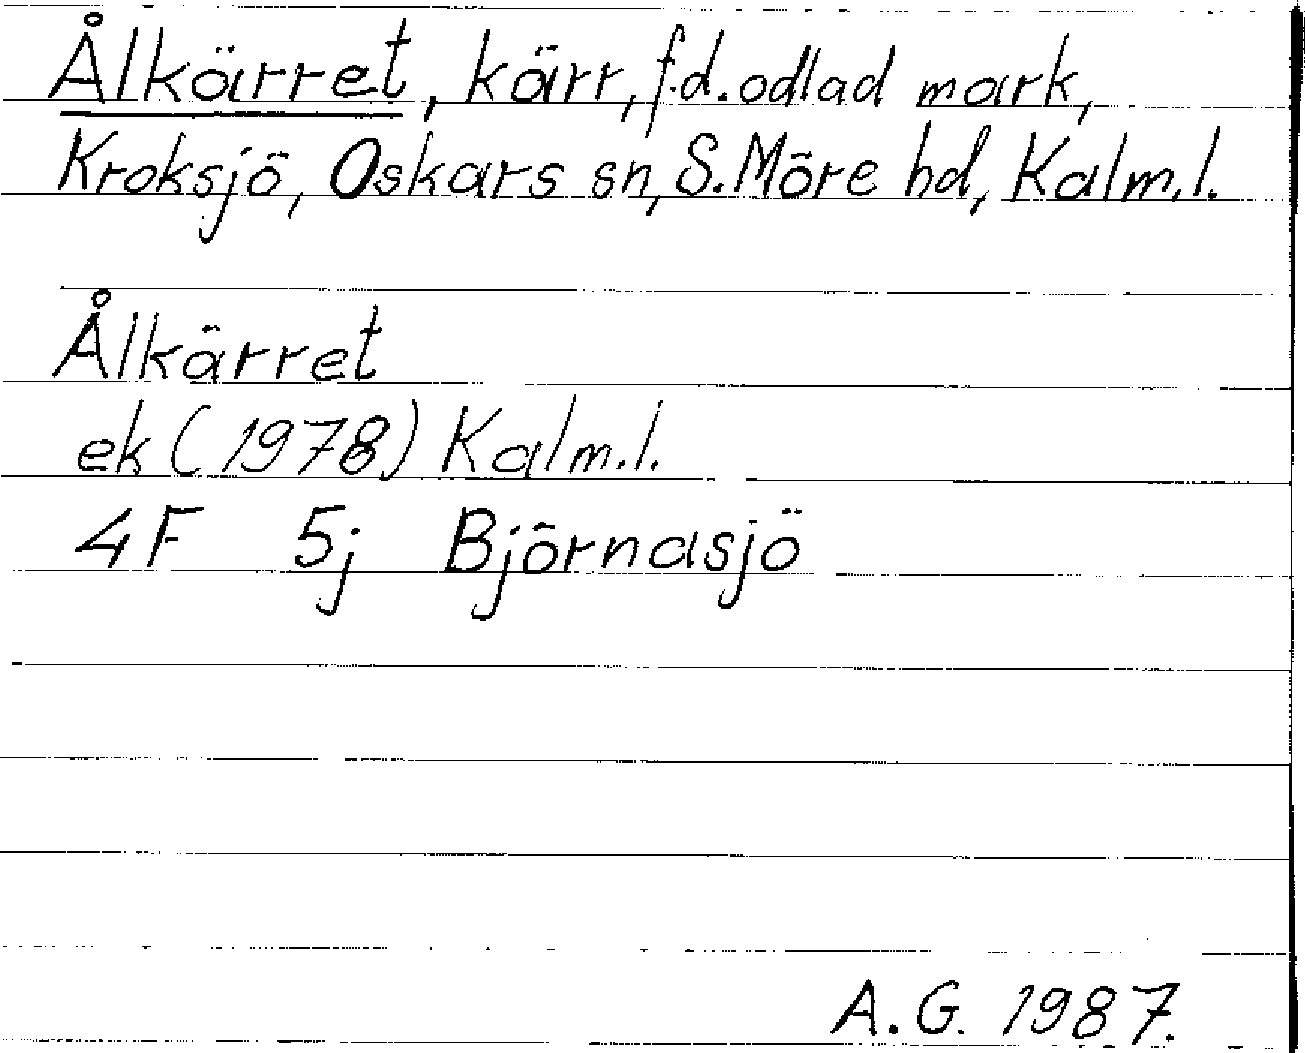 Ålkärret, kärr, f.d. odlad mark,
Kroksjö, Oskars sn, S. Möre hd, Kalm.l.
Ålkärret
ek (1978) Kalm.l.
4F 5j Björnasjö
A.G. 1987.